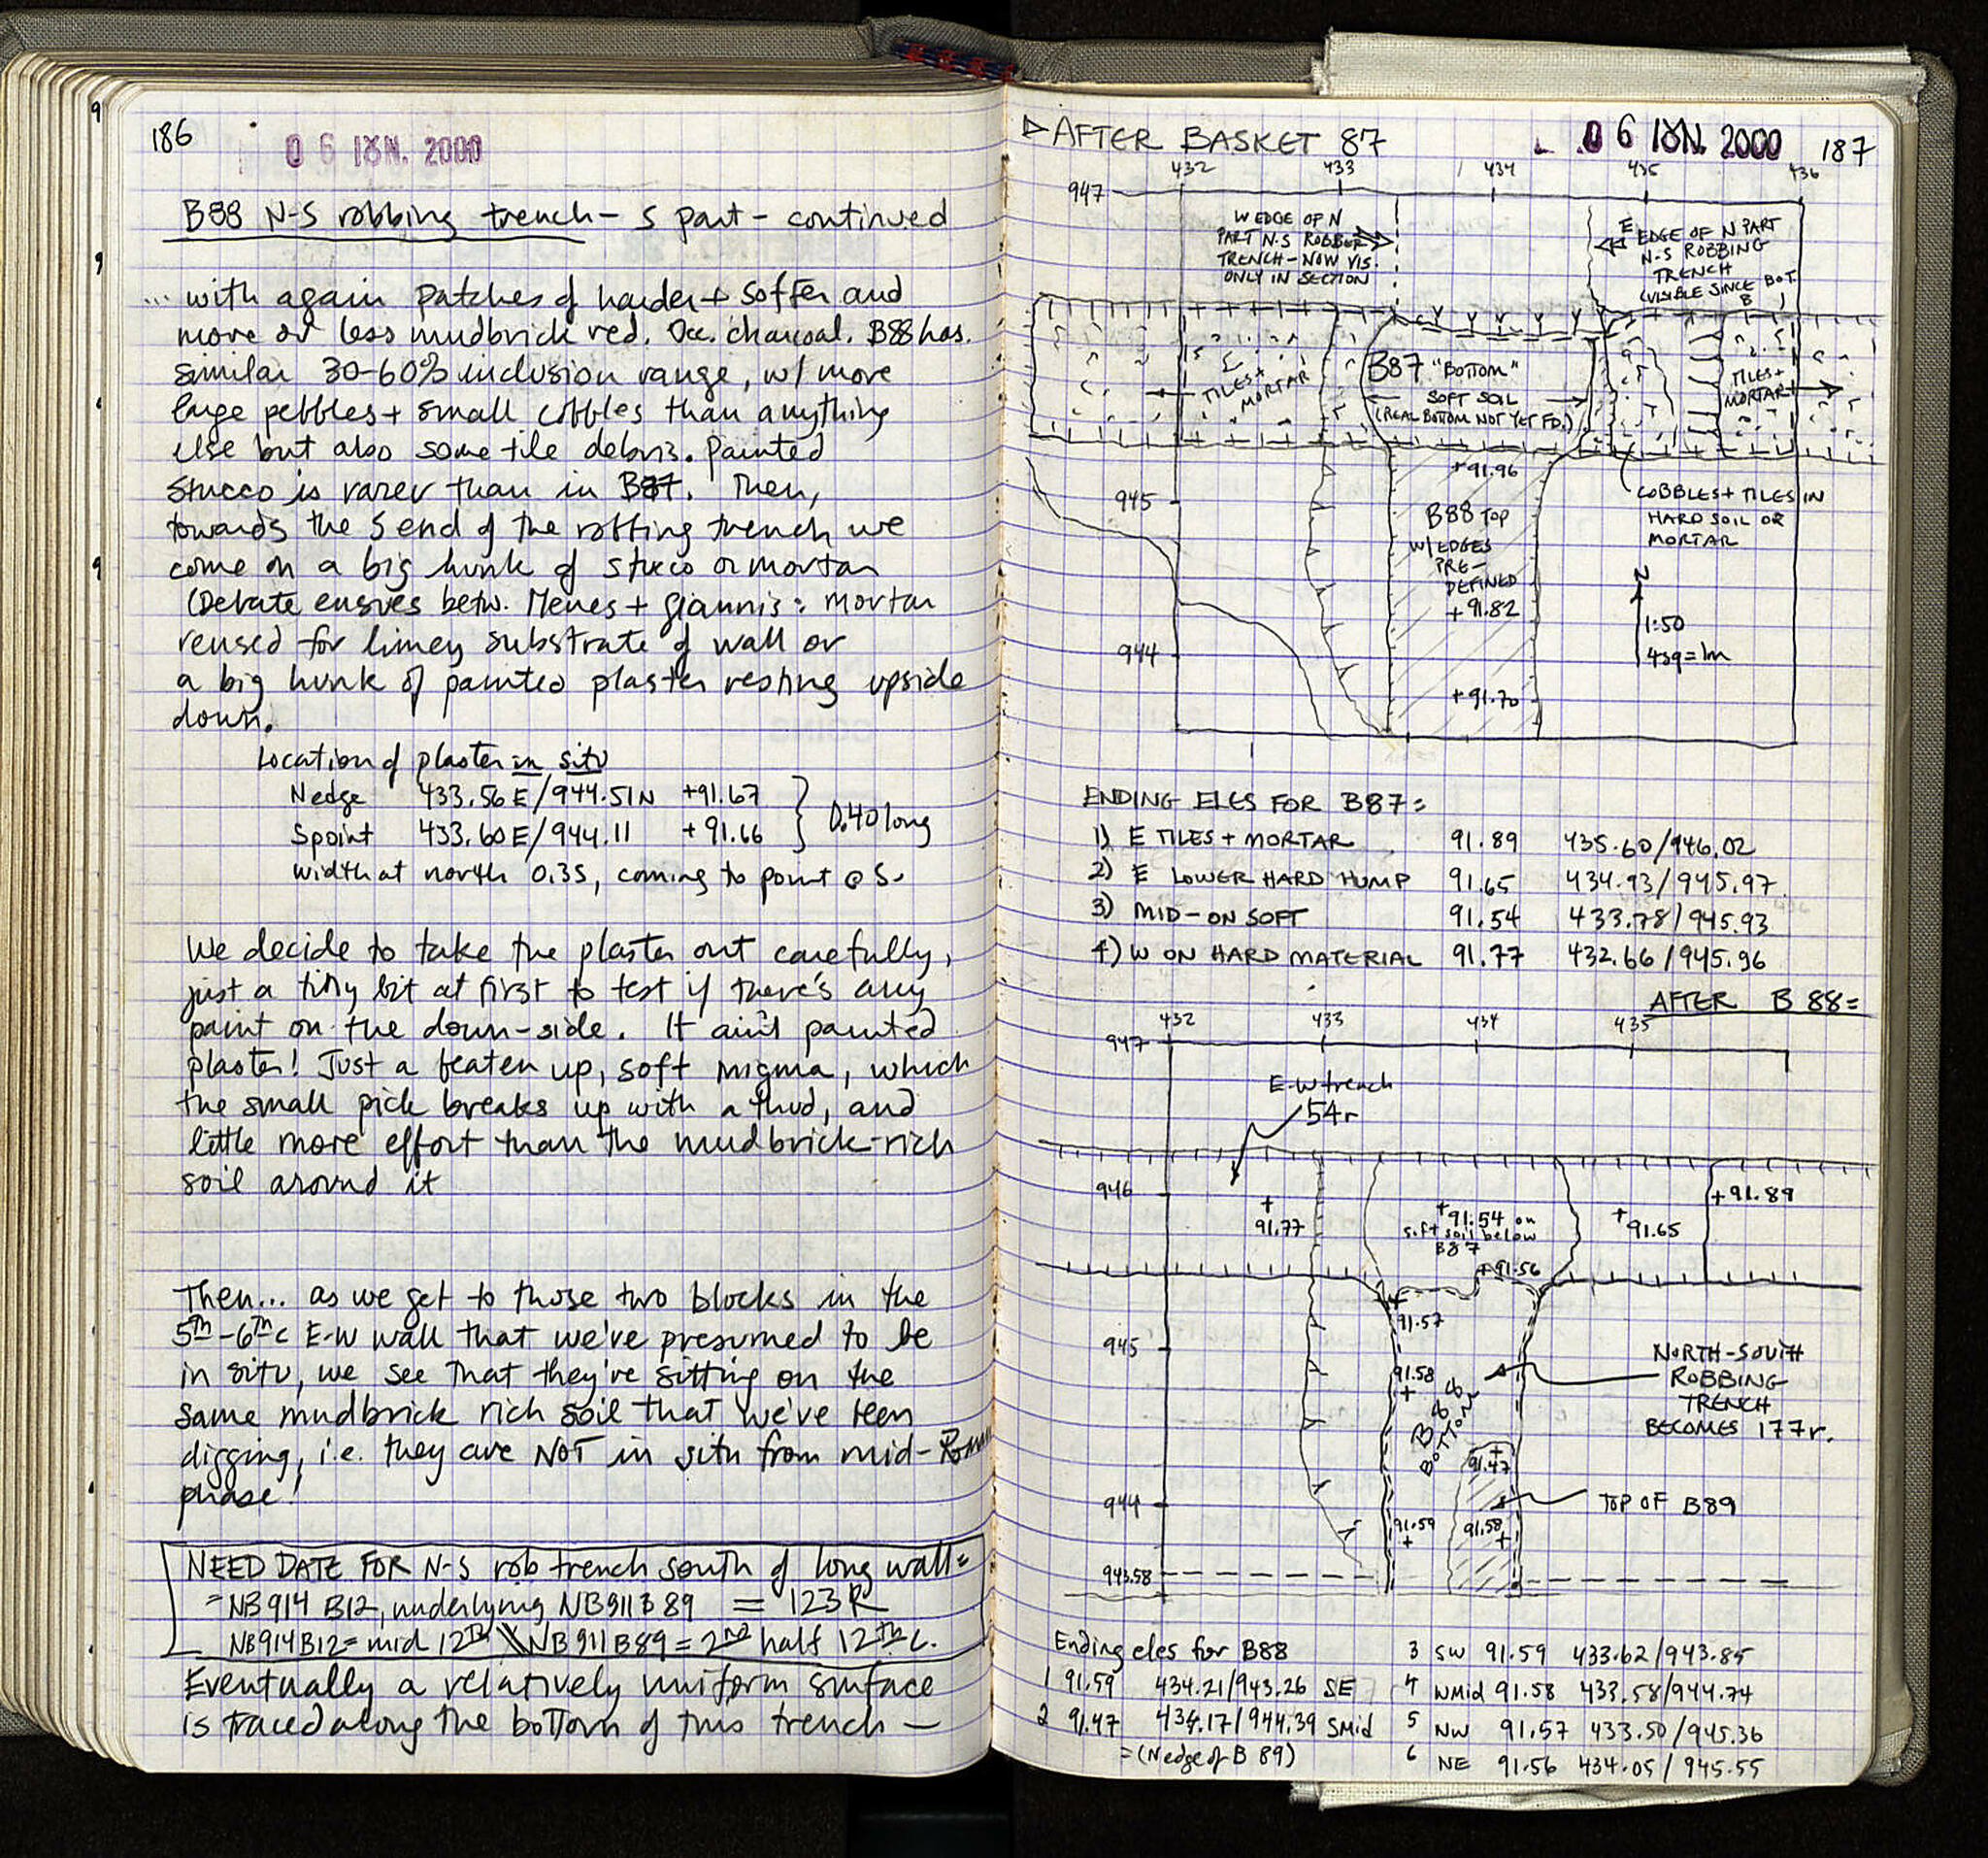 186
06 ΙΟΥΝ. 2000
B88 N-S robbing trench - S part - continued
... with again patches of harder + softer and
more or less mudbrick red. Occ. charcoal. B88 has
similar 30-60% inclusion range, w/ more
large pebbles + small cobbles than anything
else but also some tile debris. Painted
stucco is rarer than in B87. Then,
towards the S end of the robbing trench we
come on a big hunk of stucco or mortar
(Debate ensues betw. Menes + Giannis: mortar
reused for limey substrate of wall or
a big hunk of painted plaster resting upside
down.
Location of plaster in situ
N edge 433.56 E/944.51 N +91.67
S point 433.60 E/944.11 +91.66 } 0.40 long
width at north 0.35, coming to point @ S.
We decide to take the plaster out carefully,
just a tiny bit at first to test if there's any
paint on the down-side. It ain't painted
plaster! Just a beaten up, soft migma, which
the small pick breaks up with a thud, and
little more effort than the mudbrick-rich
soil around it
Then... as we get to those two blocks in the
5th-6th c E-W wall that we've presumed to be
in situ, we see that they're sitting on the
same mudbrick rich soil that we've been
digging, i.e. they are NOT in situ from mid-Roman
phase!
NEED DATE FOR N-S rob trench south of long wall =
= NB914 B12, underlying NB911 B89 = 123R
NB914B12 = mid 12th \\ NB911B89 = 2nd half 12th c.
Eventually a relatively uniform surface
is traced along the bottom of this trench —
▷ AFTER BASKET 87
06 ΙΟΥΝ. 2000
187
432 433 434 435 436
947
W EDGE OF N
PART N-S ROBBER
TRENCH - NOW VIS.
ONLY IN SECTION
E EDGE OF N PART
N-S ROBBING
TRENCH
(VISIBLE SINCE BOT.
B )
TILES +
MORTAR
B87 "BOTTOM"
SOFT SOIL
(REAL BOTTOM NOT YET FD.)
TILES +
MORTAR
+91.96
945
COBBLES + TILES IN
HARD SOIL OR
MORTAR
B88 TOP
W/ EDGES
PRE-
DEFINED
+91.82
N
1:50
4sq = 1m
944
+91.70
ENDING ELES FOR B87:
1) E TILES + MORTAR 91.89 435.60/946.02
2) E LOWER HARD HUMP 91.65 434.93/945.97
3) MID - ON SOFT 91.54 433.78/945.93
4) W ON HARD MATERIAL 91.77 432.66/945.96
AFTER B 88=
432 433 434 435
947
E-W trench
54r
946
+ 91.77
+91.54 on
soft soil below
B87
+91.56
+91.65
+91.89
+ 91.57
945
91.58 +
B88
BOTTOM
NORTH-SOUTH
ROBBING
TRENCH
BECOMES 177r.
+ 91.47
944
TOP OF B89
91.59 +
91.58 +
943.58
Ending eles for B88
1 91.59 434.21/943.26 SE
2 91.47 434.17/944.39 SMid
= (N edge of B 89)
3 SW 91.59 433.62/943.85
4 WMid 91.58 433.58/944.74
5 NW 91.57 433.50/945.36
6 NE 91.56 434.05/945.55